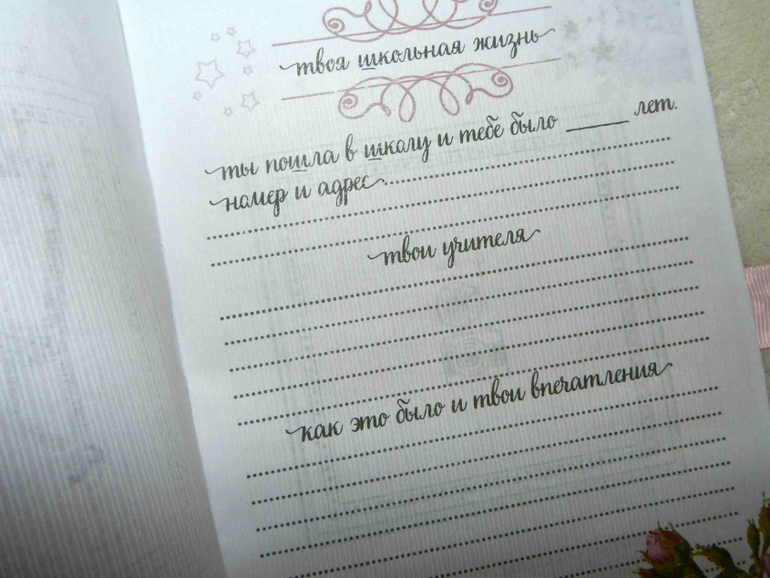 твоя школьная жизнь
ты пошла в школу и тебе было ______ лет.
номер и адрес
твои учителя
как это было и твои впечатления